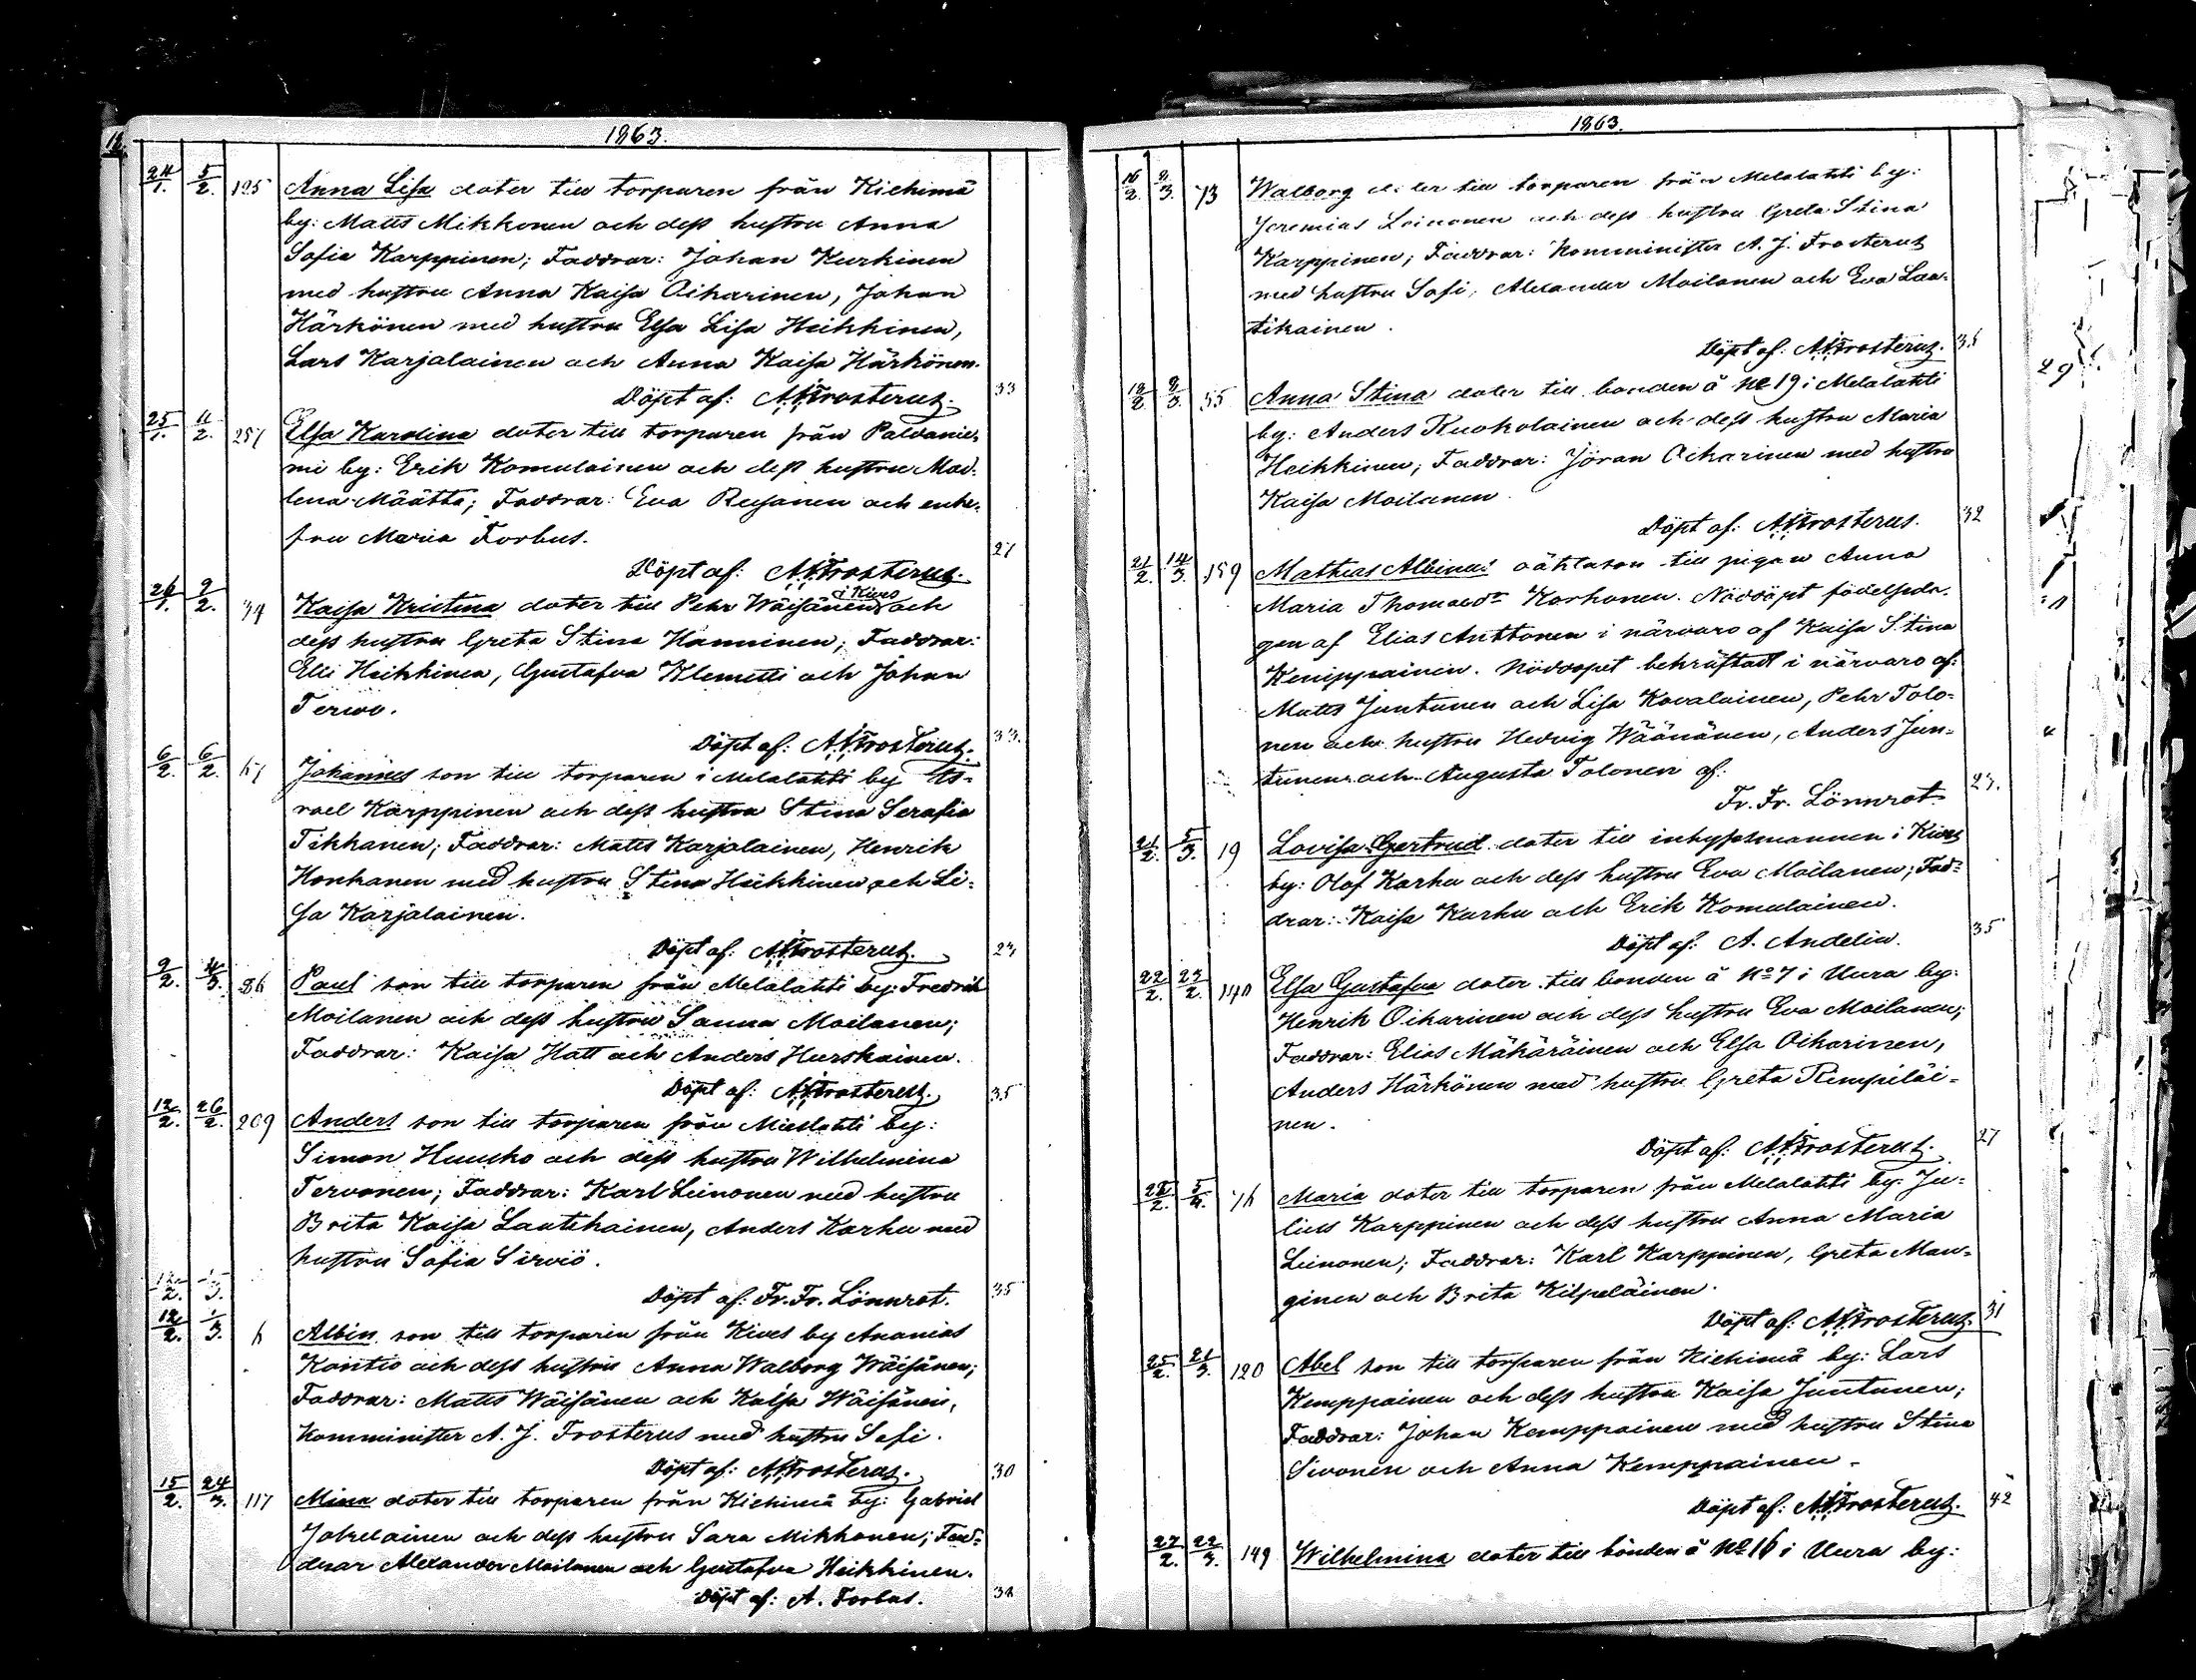 12.
1863.
24/1. 5/2. 125 Anna Lisa doter till torparen från Kiehimä
by: Matts Mikkonen och dess hustru Anna
Sofia Karppinen; Faddrar: Johan Kurkinen
med hustru Anna Kaisa Oikarinen, Johan
Härkönen med hustru Elsa Lisa Heikkinen,
Lars Karjalainen och Anna Kaisa Härkönen.
Döpt af: A.J. Frosterus. 33
25/1. 11/2. 257 Elsa Karolina doter till torparen från Paldanie-
mi by: Erik Komulainen och dess hustru Mad-
lena Määttä; Faddrar: Eva Rusanen och enke-
fru Maria Forbus. 27
Döpt af: A.J. Frosterus.
26/1. 9/2. 34 Kaisa Kristina doter till Pehr Wäisänen i Kives och
dess hustru Greta Stina Hanninen; Faddrar:
Elli Heikkinen, Gustafva Klemetti och Johan
Terwo.
Döpt af: A.J. Frosterus. 33.
6/2. 6/2. 67 Johannes son till torparen i Melalahti by Is-
rael Karppinen och dess hustru Stina Serafia
Tikkanen; Faddrar: Matts Karjalainen, Henrik
Honkanen med hustru Stina Heikkinen och Li-
sa Karjalainen.
Döpt af: A.J. Frosterus. 23
9/2. 4/3. 86 Paul son till torparen från Melalahti by: Fredrik
Moilanen och dess hustru Sanna Moilanen;
Faddrar: Kaisa Hatt och Anders Hurskainen.
Döpt af: A.J. Frosterus. 35
12/2. 26/2. 209 Anders son till torparen från Mieslahti by:
Simon Huusko och dess hustru Wilhelmina
Tervonen; Faddrar: Karl Leinonen med hustru
Brita Kaisa Laatikainen, Anders Karhu med
hustru Sofia Sirviö.
12/2. 1/3. Döpt af: Fr. Fr. Lönnrot. 35
12/2. 1/3. 6 Albin son till torparen från Kives by Ananias
Kontio och dess hustru Anna Walborg Wäisänen;
Faddrar: Matts Wäisänen och Kaisa Wäisänen,
Komminister A. J. Frosterus med hustru Sofi.
Döpt af: A.J. Frosterus. 30
15/2. 24/3. 117 Mina doter till torparen från Kiehimä by: Gabriel
Jokelainen och dess hustru Sara Mikkonen; Fad-
drar Alexander Moilanen och Gustafva Heikkinen.
Döpt af: A. Forbus. 38
1863.
16/2. 9/3. 73 Walborg doter till torparen från Melalahti by:
Jeremias Leinonen och dess hustru Greta Stina
Karppinen; Faddrar: Komminister A. J. Frosterus
med hustru Sofi, Alexander Moilanen och Eva Laa-
tikainen.
Döpt af: A.J. Frosterus. 35
18/2. 8/3. 55 Anna Stina doter till bonden å No 19 i Melalahti
by: Anders Ruokolainen och dess hustru Maria
Heikkinen; Faddrar: Jöran Oikarinen med hustru
Kaisa Moilanen.
Döpt af: A.J. Frosterus. 32
21/2. 14/3. 159 Mathias Albinus oäkta son till pigan Anna
Maria Thomasdr Korhonen. Nöddöpt födelseda-
gen af Elias Anttonen i närvaro af Kaisa Stina
Kemppainen. Nöddopet bekräftadt i närvaro af:
Matts Juntunen och Lisa Kovalainen, Pehr Tolo-
nen och hustru Hedvig Wäänänen, Anders Jun-
tunen och Augusta Tolonen af:
Fr. Fr. Lönnrot. 23.
21/2. 5/3. 19 Lovisa Gertrud doter till inhyssesmannen i Kives
by: Olof Karhu och dess hustru Eva Moilanen; Fad-
drar: Kaisa Karhu och Erik Komulainen.
Döpt af: A. Andelin. 35
22/2. 23/2. 140 Elsa Gustafva doter till bonden å No 7 i Uura by:
Henrik Oikarinen och dess hustru Eva Moilanen;
Faddrar: Elias Mähäräinen och Elsa Oikarinen,
Anders Härkönen med hustru Greta Rimpiläi-
nen.
Döpt af: A.J. Frosterus. 27
5/4. 76 Maria doter till torparen från Melalahti by: Ju-
lius Karppinen och dess hustru Anna Maria
Leinonen; Faddrar: Karl Karppinen, Greta Man-
ginen och Brita Kilpeläinen.
Döpt af: A.J. Frosterus. 31
25/2. 21/3. 120 Abel son till torparen från Kiehimä by: Lars
Kemppainen och dess hustru Kaisa Juntunen;
Faddrar: Johan Kemppainen med hustru Stina
Sivonen och Anna Kemppainen.
Döpt af: A.J. Frosterus. 42
27/2. 22/3. 149 Wilhelmina doter till bonden å No 16 i Uura by:
29